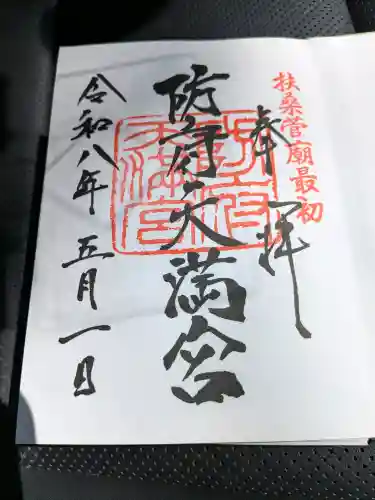 扶桑菅廟最初
奉拝
防府天満宮
防府天満宮
令和八年五月一日